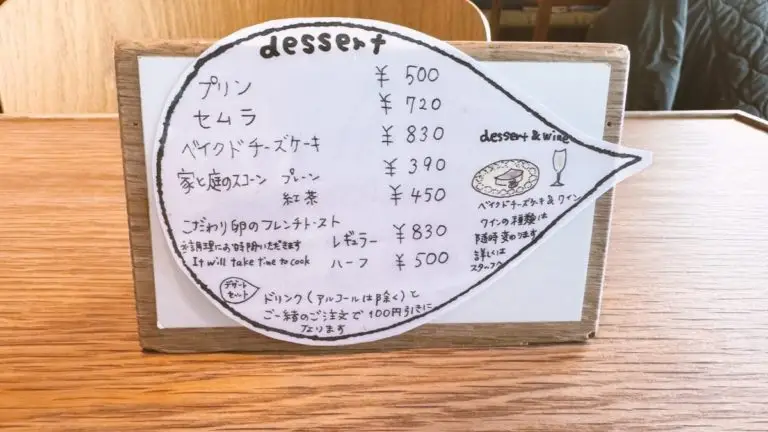 dessert
プリン ¥500
セムラ ¥720
ベイクドチーズケーキ ¥830
家と庭のスコーン プレーン ¥390
紅茶 ¥450
こだわり卵のフレンチトースト
※調理にお時間いただきます レギュラー ¥830
It will take time to cook ハーフ ¥500
デザートセット
ドリンク(アルコールは除く)と
ご一緒のご注文で100円引きに
なります
dessert & wine
ベイクドチーズケーキ & ワイン
ワインの種類は
随時変わります
詳しくは
スタッフへ